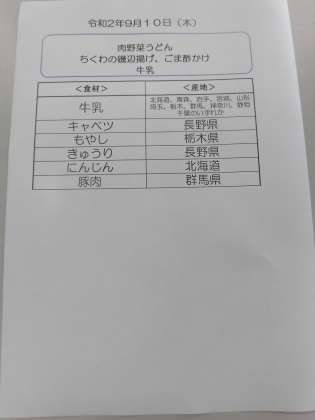 令和2年9月10日（木）
肉野菜うどん
ちくわの磯辺揚げ、ごま酢かけ
牛乳
＜食材＞ ＜産地＞
牛乳 北海道、青森、岩手、宮城、山形
埼玉、栃木、群馬、神奈川、静岡
千葉のいずれか
キャベツ 長野県
もやし 栃木県
きゅうり 長野県
にんじん 北海道
豚肉 群馬県